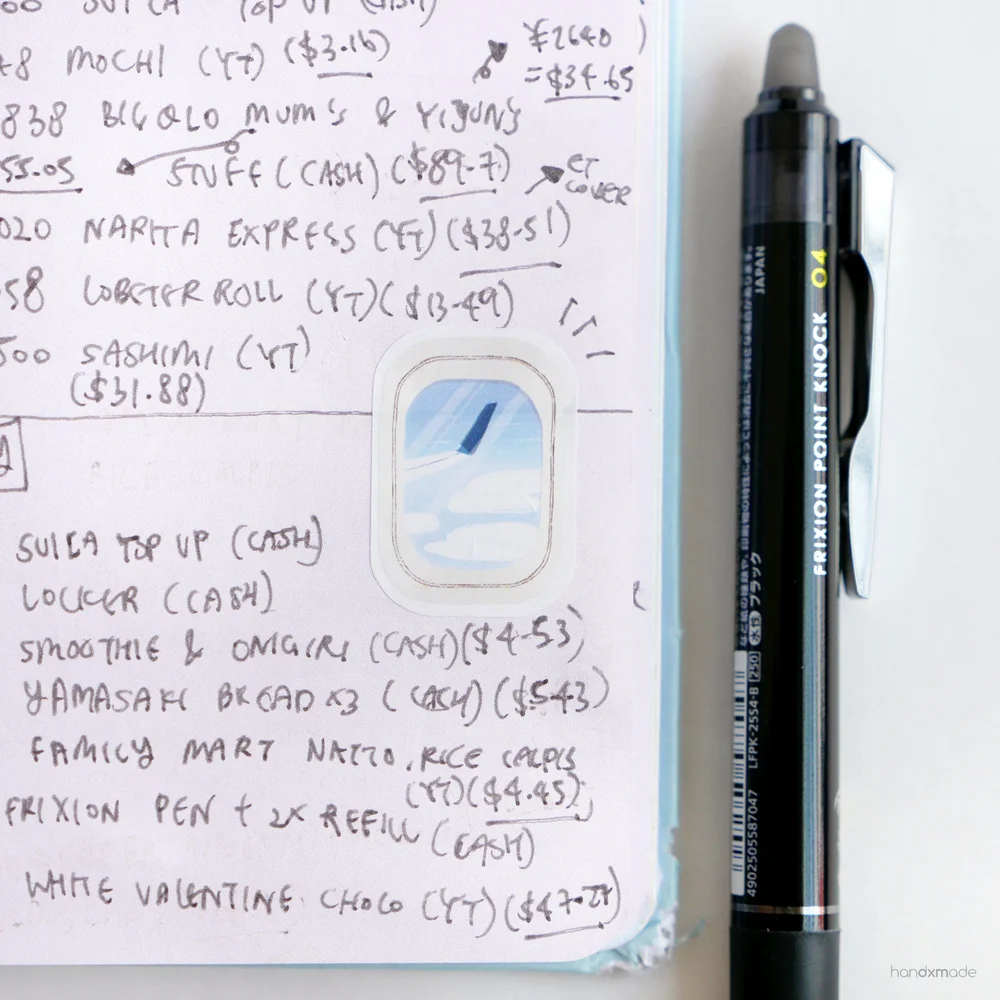 TOP UP (CASH)
48 MOCHI (YT) ($3.16)
¥2640
= $34.65
838 BIC QLO MUM'S & YIJUN'S
55.05 STUFF (CASH) ($89.7)
CT
COVER
020 NARITA EXPRESS (YT) ($38.51)
58 LOBSTER ROLL (YT) ($13.49)
500 SASHIMI (YT)
($31.88)
SUICA TOP UP (CASH)
LOCKER (CASH)
SMOOTHIE & ONIGIRI (CASH) ($4.53)
YAMASAKI BREAD x3 (CASH) ($5.43)
FAMILY MART NATTO, RICE
(YT) ($4.45)
FRIXION PEN + 2X REFILL
(CASH)
WHITE VALENTINE CHOCO (YT) ($47.27)
FRIXION POINT KNOCK 04
JAPAN
4902505587047 LFPK-2554-B 250 水性 ブラック
handxmade